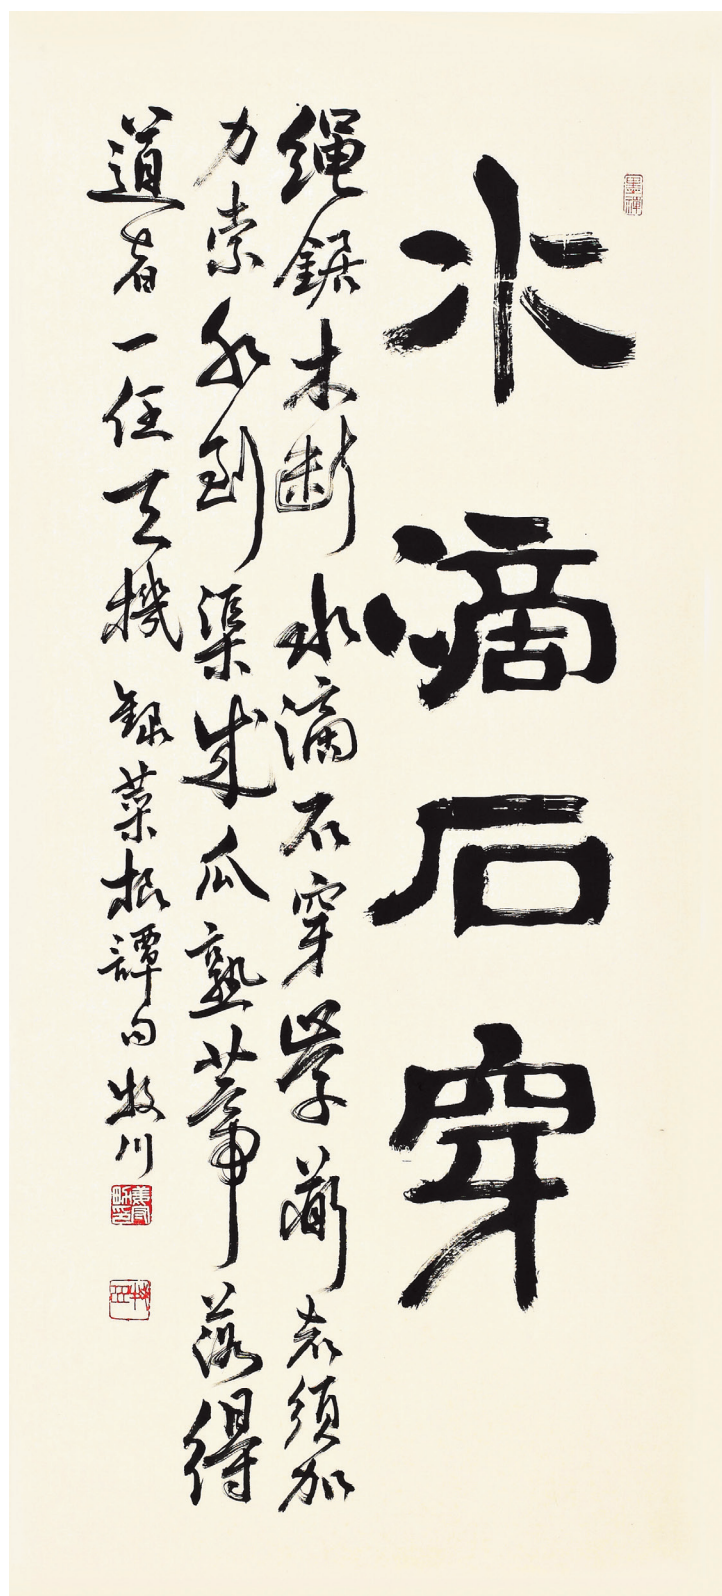 墨禪
水滴石穿
绳鋸木断水滴石穿學道者須加
力索水到渠成瓜熟蒂落得
道者一任天機 録菜根譚句 牧川